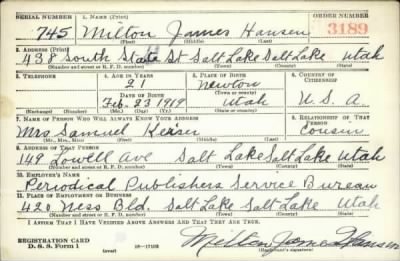 SERIAL NUMBER 1. NAME (Print) ORDER NUMBER
745 Milton James Hansen 3189
(First) (Middle) (Last)
2. ADDRESS (Print)
438 South State St Salt Lake Salt Lake Utah
(Number and street or R. F. D. number) (Town) (County) (State)
3. TELEPHONE 4. AGE IN YEARS 5. PLACE OF BIRTH 6. COUNTRY OF CITIZENSHIP
21 Newton
DATE OF BIRTH (Town or county)
Feb. 23 1919 Utah U. S. A.
(Exchange) (Number) (Mo.) (Day) (Yr.) (State or country)
7. NAME OF PERSON WHO WILL ALWAYS KNOW YOUR ADDRESS 8. RELATIONSHIP OF THAT PERSON
Mrs Samuel Keiser Cousin
(Mr., Mrs., Miss) (First) (Middle) (Last)
9. ADDRESS OF THAT PERSON
149 Lowell Ave Salt Lake Salt Lake Utah
(Number and street or R. F. D. number) (Town) (County) (State)
10. EMPLOYER'S NAME
Periodical Publishers Service Bureau
11. PLACE OF EMPLOYMENT OR BUSINESS
420 Ness Bld. Salt Lake Salt Lake Utah
(Number and street or R. F. D. number) (Town) (County) (State)
I AFFIRM THAT I HAVE VERIFIED ABOVE ANSWERS AND THAT THEY ARE TRUE.
REGISTRATION CARD
D. S. S. Form 1 (over) 16—17105 Milton James Hansen
(Registrant's signature)